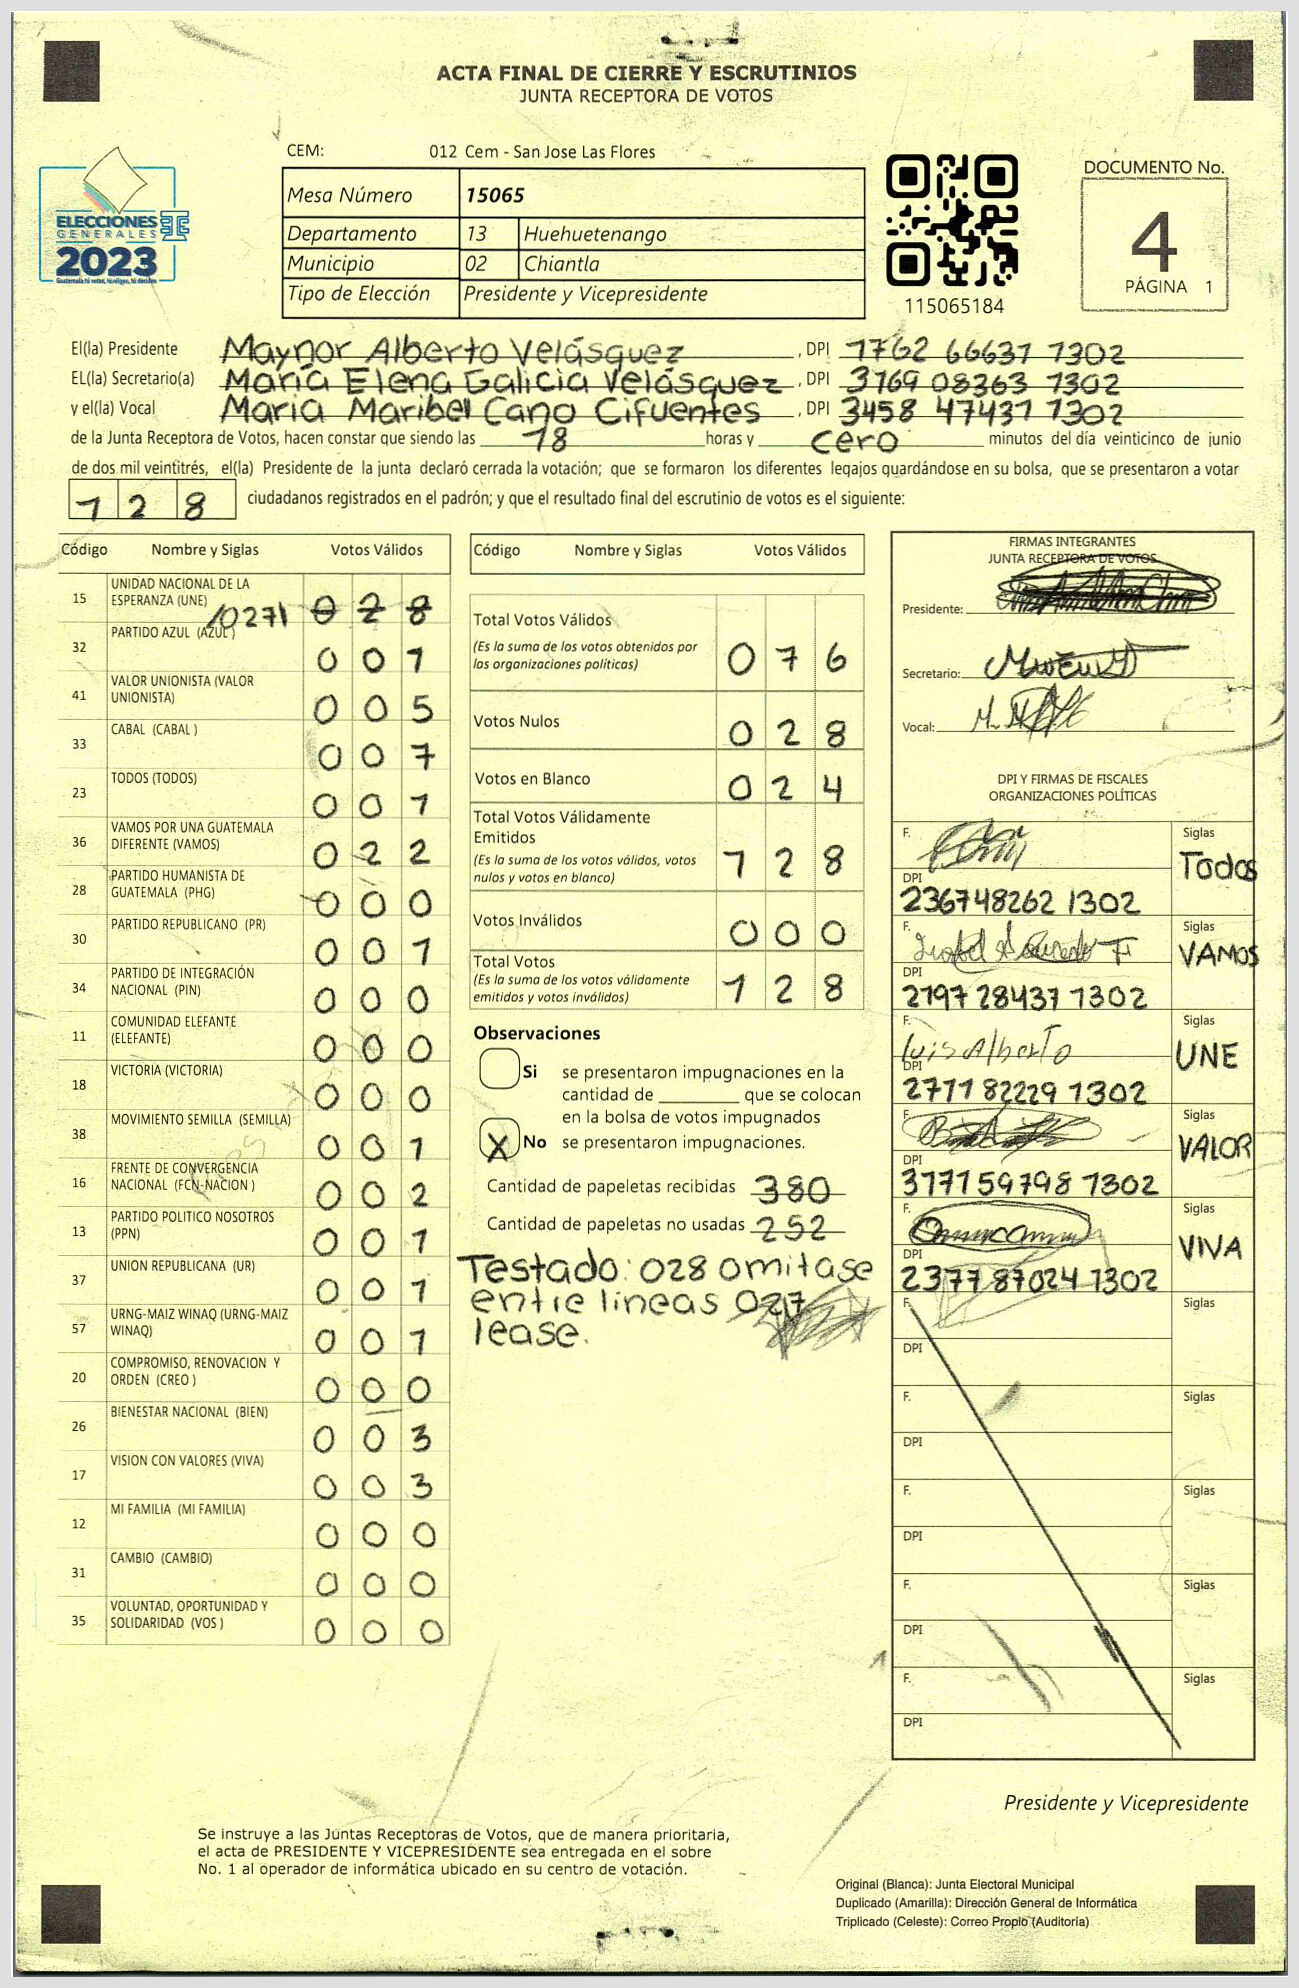 ACTA FINAL DE CIERRE Y ESCRUTINIOS
JUNTA RECEPTORA DE VOTOS
CEM: 012 Cem - San Jose Las Flores
Mesa Número 15065
Departamento 13 Huehuetenango
Municipio 02 Chiantla
Tipo de Elección Presidente y Vicepresidente
ELECCIONES
GENERALES
2023
Guatemala tú votas, tú eliges, tú decides
115065184
DOCUMENTO No.
4
PÁGINA 1
El(la) Presidente Maynor Alberto Velásquez , DPI 1762 66637 1302
EL(la) Secretario(a) María Elena Galicia Velásquez , DPI 3769 08363 1302
y el(la) Vocal Maria Maribel Cano Cifuentes , DPI 3458 47437 1302
de la Junta Receptora de Votos, hacen constar que siendo las 18 horas y cero minutos del día veinticinco de junio
de dos mil veintitrés, el(la) Presidente de la junta declaró cerrada la votación; que se formaron los diferentes legajos guardándose en su bolsa, que se presentaron a votar
128 ciudadanos registrados en el padrón; y que el resultado final del escrutinio de votos es el siguiente:
Código Nombre y Siglas Votos Válidos
15 UNIDAD NACIONAL DE LA
ESPERANZA (UNE) /027/ 028
32 PARTIDO AZUL (AZUL) 001
41 VALOR UNIONISTA (VALOR
UNIONISTA) 005
33 CABAL (CABAL ) 007
23 TODOS (TODOS) 001
36 VAMOS POR UNA GUATEMALA
DIFERENTE (VAMOS) 022
28 PARTIDO HUMANISTA DE
GUATEMALA (PHG) 000
30 PARTIDO REPUBLICANO (PR) 001
34 PARTIDO DE INTEGRACIÓN
NACIONAL (PIN) 000
11 COMUNIDAD ELEFANTE
(ELEFANTE) 000
18 VICTORIA (VICTORIA) 000
38 MOVIMIENTO SEMILLA (SEMILLA) 001
16 FRENTE DE CONVERGENCIA
NACIONAL (FCN-NACION ) 002
13 PARTIDO POLITICO NOSOTROS
(PPN) 001
37 UNION REPUBLICANA (UR) 001
57 URNG-MAIZ WINAQ (URNG-MAIZ
WINAQ) 001
20 COMPROMISO, RENOVACION Y
ORDEN (CREO ) 000
26 BIENESTAR NACIONAL (BIEN) 003
17 VISION CON VALORES (VIVA) 003
12 MI FAMILIA (MI FAMILIA) 000
31 CAMBIO (CAMBIO) 000
35 VOLUNTAD, OPORTUNIDAD Y
SOLIDARIDAD (VOS ) 000
Código Nombre y Siglas Votos Válidos
Total Votos Válidos
(Es la suma de los votos obtenidos por
las organizaciones políticas) 076
Votos Nulos 028
Votos en Blanco 024
Total Votos Válidamente
Emitidos
(Es la suma de los votos válidos, votos
nulos y votos en blanco) 128
Votos Inválidos 000
Total Votos
(Es la suma de los votos válidamente
emitidos y votos inválidos) 128
Observaciones
Si se presentaron impugnaciones en la
cantidad de ________ que se colocan
en la bolsa de votos impugnados
X No se presentaron impugnaciones.
Cantidad de papeletas recibidas 380
Cantidad de papeletas no usadas 252
Testado: 028 omitase
entre lineas 027
lease.
FIRMAS INTEGRANTES
JUNTA RECEPTORA DE VOTOS
Presidente:
Secretario:
Vocal:
DPI Y FIRMAS DE FISCALES
ORGANIZACIONES POLÍTICAS
F. Siglas
Todos
DPI
236748262 1302
F. Siglas
VAMOS
DPI
2197 28437 1302
F. Luis Alberto Siglas
UNE
DPI
2711 82229 1302
F. Siglas
VALOR
DPI
317759798 1302
F. Siglas
VIVA
DPI
2377 87024 1302
F. Siglas
DPI
F. Siglas
DPI
F. Siglas
DPI
F. Siglas
DPI
F. Siglas
DPI
Presidente y Vicepresidente
Se instruye a las Juntas Receptoras de Votos, que de manera prioritaria,
el acta de PRESIDENTE Y VICEPRESIDENTE sea entregada en el sobre
No. 1 al operador de informática ubicado en su centro de votación.
Original (Blanca): Junta Electoral Municipal
Duplicado (Amarilla): Dirección General de Informática
Triplicado (Celeste): Correo Propio (Auditoría)